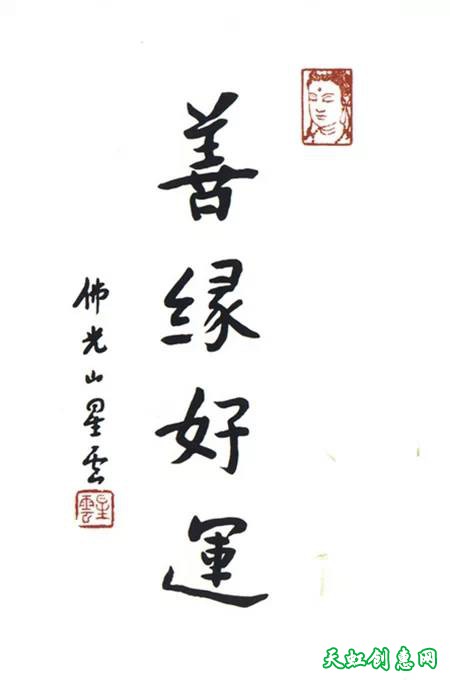 善緣好運
佛光山星雲
星雲
天虹创意网